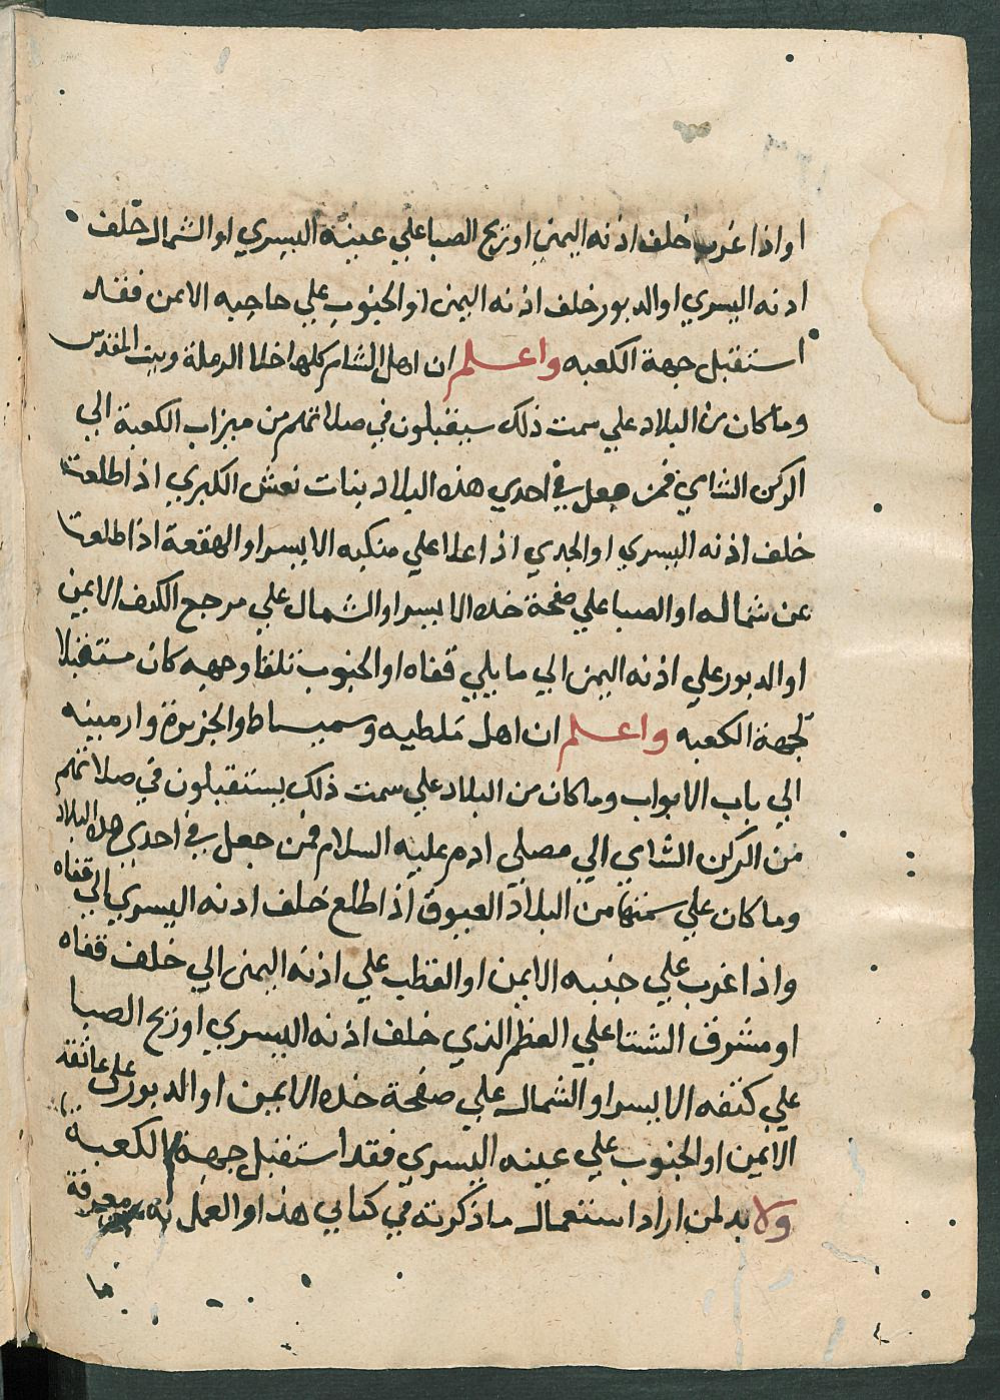 او اذا غرب خلف اذنه اليمني او تريح الصبا علي عينه اليسري او الشمال خلف
ادنه اليسري او الدبور خلف اذنه اليمن او الجنوب علي حاجبه الايمن فقد
استقبل جهة الكعبه واعلم ان اهل الشام كلها خلا الرملة وبيت المقدس
وما كان من البلاد علي سمت ذلك سيقبلون في صلاتهم من ميزاب الكعبة الي
الركن الشامي فمن جعل في احدي هذه البلاد بنات نعش الكبري اذا طلعت
خلف اذنه اليسري او الجدي اذا علا علي منكبه الايسر او الهقعة اذا طلعت
عن شماله او الصبا علي صفحة خده الايسر او الشمال علي مرجع الكتف الايمن
او الدبور علي اذنه اليمن الي ما يلي قفاه او الجنوب تلقا وجهه كان مستقبلا
لجهة الكعبه واعلم ان اهل ملطيه وسميساط والجزيرة وارمينه
الي باب الابواب وما كان من البلاد علي سمت ذلك يستقبلون في صلاتهم
من الركن الشامي الي مصلي ادم عليه السلام فمن جعل في احدي هذه البلاد
وما كان علي سمتها من البلاد العيوق اذا طلع خلف ادنه اليسري الي قفاه
واذا غرب علي جنبه الايمن او القطب علي اذنه اليمنى الي خلف قفاه
او مشرق الشتا علي العظم الذي خلف اذنه اليسري او تريح الصبا
علي كتفه الايسر او الشمال علي صفحة خده الايمن او الدبور علي عاتقه
الايمن او الجنوب علي عينه اليسري فقد استقبل جهة الكعبة
ولا بد لمن اراد استعمال ما ذكرته في كتابي هذا والعمل به معرفة
ما